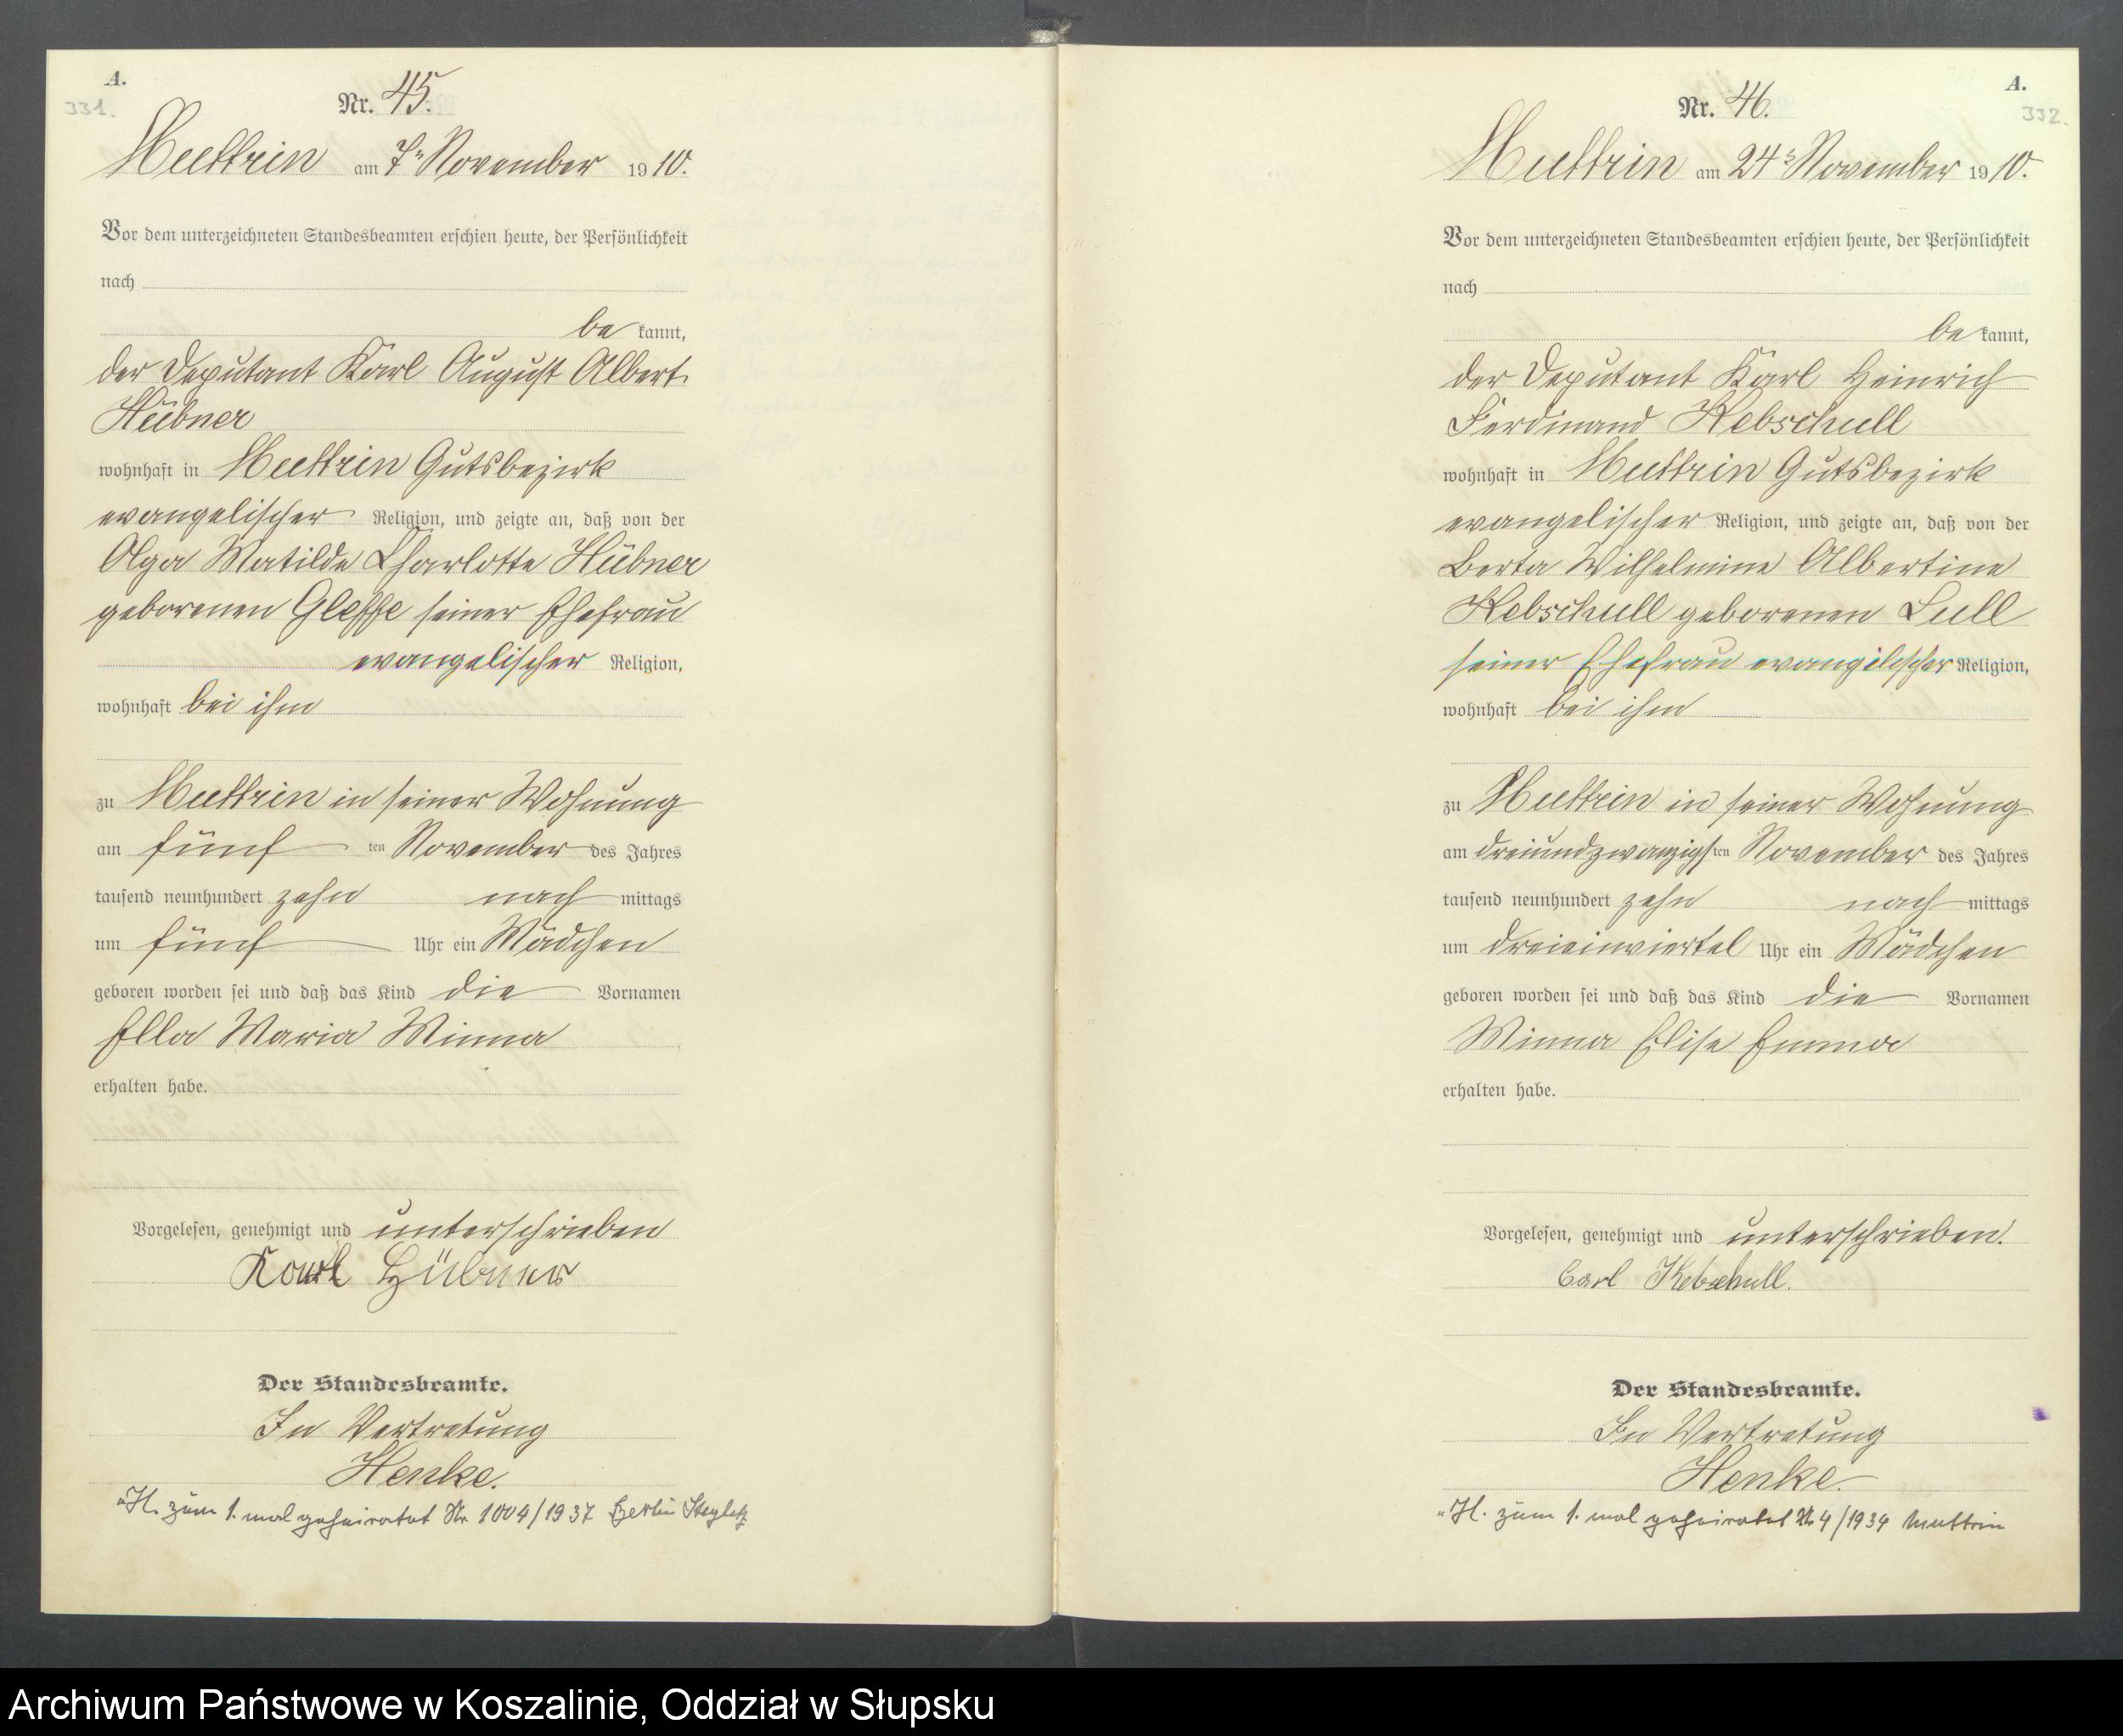 A.
331.
Nr. 45.
Muttrin am 7ten November 1910.
Vor dem unterzeichneten Standesbeamten erschien heute, der Persönlichkeit
nach
be kannt,
der Deputant Karl August Albert
Hübner
wohnhaft in Muttrin Gutsbezirk
evangelischer Religion, und zeigte an, daß von der
Olga Matilde Charlotte Hübner
geborenen seiner Ehefrau
evangelischer Religion,
wohnhaft bei ihm
zu Muttrin in seiner Wohnung
am fünf ten November des Jahres
tausend neunhundert zehn nach mittags
um fünf Uhr ein Mädchen
geboren worden sei und daß das Kind die Vornamen
Ella Maria Minna
erhalten habe.
Vorgelesen, genehmigt und unterschrieben
Karl Hübner
Der Standesbeamte.
In Vertretung
Henke.
"H. zum 1. mal geheiratet Nr. 1004/1937 Berlin Steglitz
A.
332.
Nr. 46.
Muttrin am 24ten November 1910.
Vor dem unterzeichneten Standesbeamten erschien heute, der Persönlichkeit
nach
be kannt,
der Deputant Karl Heinrich
Ferdinand Kebschull
wohnhaft in Muttrin Gutsbezirk
evangelischer Religion, und zeigte an, daß von der
Berta Wilhelmine Albertine
Kebschull geborenen Lull
seiner Ehefrau evangelischer Religion,
wohnhaft bei ihm
zu Muttrin in seiner Wohnung
am dreiundzwanzigsten November des Jahres
tausend neunhundert zehn nach mittags
um dreieinviertel Uhr ein Mädchen
geboren worden sei und daß das Kind die Vornamen
Minna Elise Emma
erhalten habe.
Vorgelesen, genehmigt und unterschrieben.
Carl Kebschull.
Der Standesbeamte.
In Vertretung
Henke.
"H. zum 1. mal geheiratet Nr. 4/1934 Muttrin
Archiwum Państwowe w Koszalinie, Oddział w Słupsku